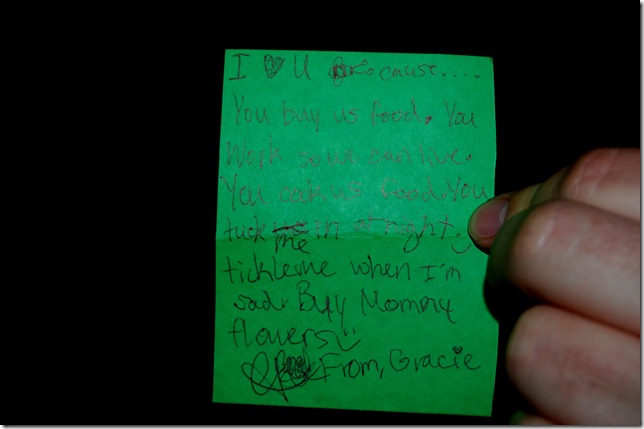 I ♥ U Because....
You buy us food. You
Work so we can live.
You cook us food. You
tuck me in at night.
tickle me when I'm
sad. Buy Mommy
flowers
From, Gracie